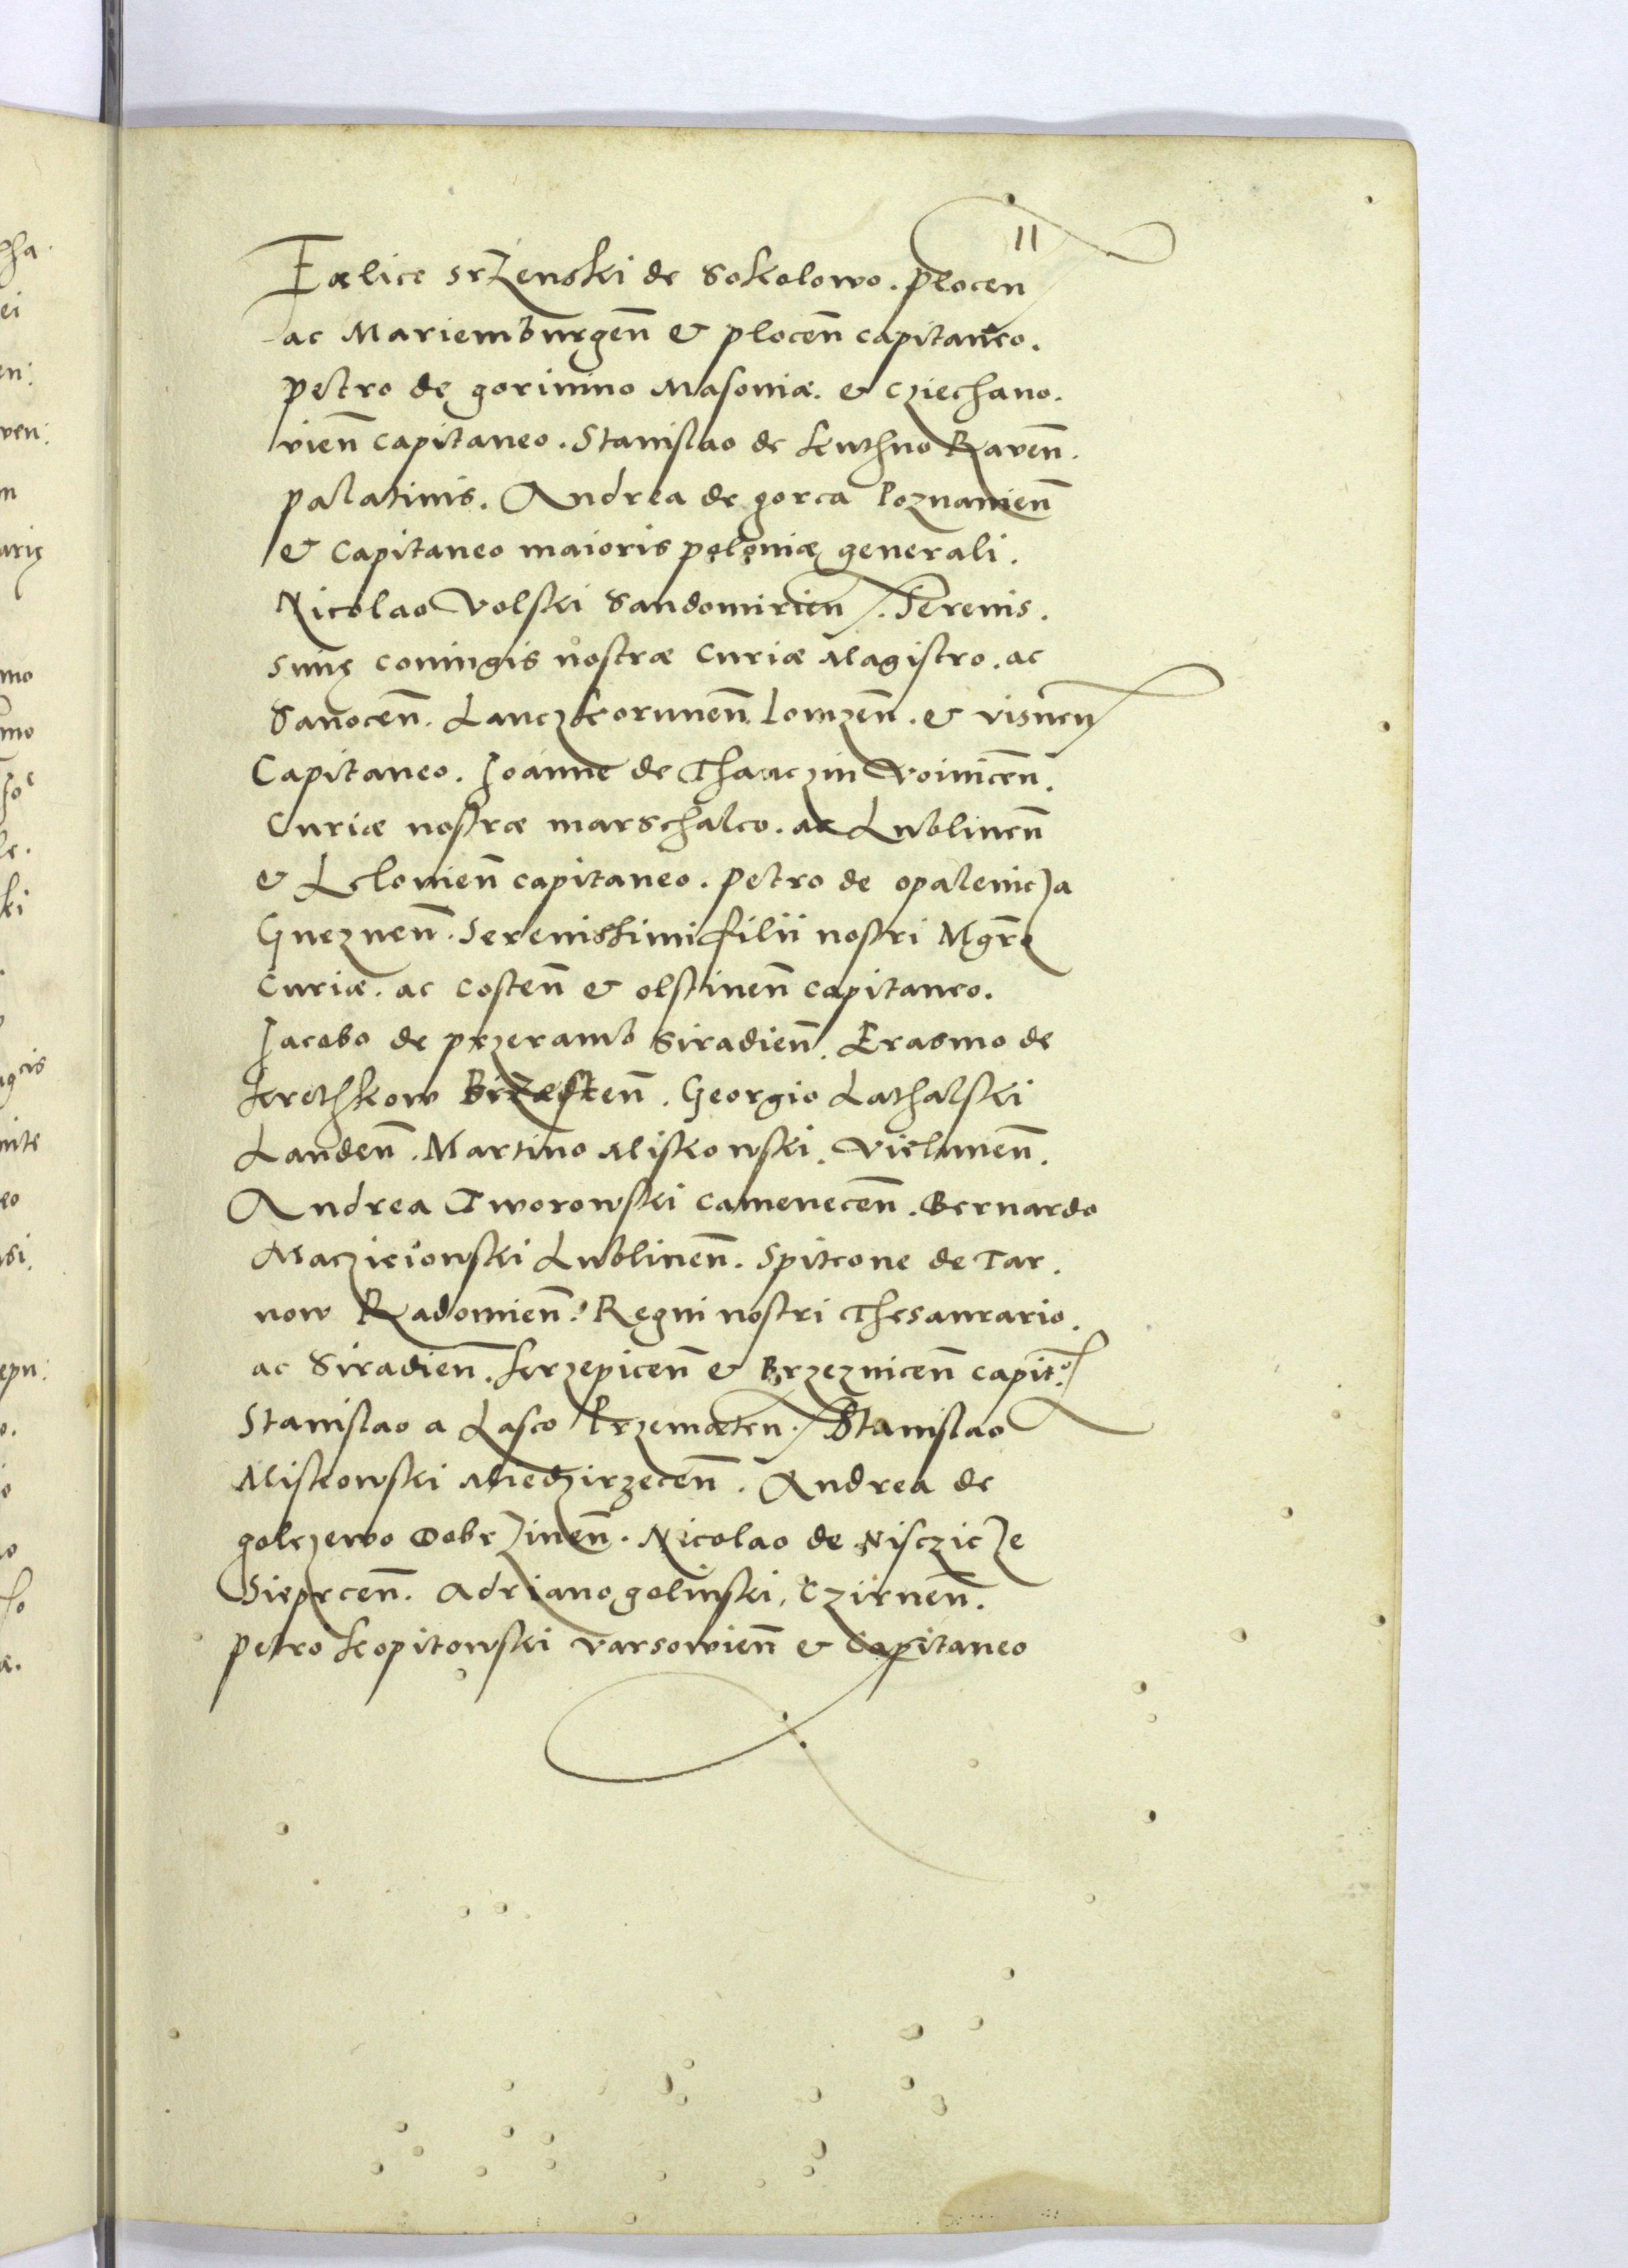 11
Fælice srzenski de Sokolowo. plocen
ac Mariemburgen̄ & plocen̄ capitaneo.
petro de gorinino Masoniæ. & cziechano.
vien̄ capitaneo. Stanislao de kuthno Raven̄.
palatinis. Andrea de gorca Poznanien̄
& capitaneo maioris poloniæ generali.
Nicolao Volski Sandomirien. Serenis.
simę coniugis nostræ curiæ Magistro. ac
Sanocen̄. Lanczkorunen̄. Lomzen̄. & visnen
Capitaneo. Joanne de Thaaczin Voinicen̄.
Curiæ nostræ marschalco. ac Lublinen̄
& Lelovien̄ capitaneo. petro de opalenicza
Gneznen̄. Serenissimi filii nostri Mgr̄o
Curiæ. ac costen̄ & olstinen̄ capitaneo.
Jacobo de przeramb Siradien̄. Erasmo de
krethkow Brzesten̄. Georgio Lathalski
Landen̄. Martino Miskowski. Vielunen̄.
Andrea Tworowski camenecen̄. Bernardo
Maczieiowski Lublinen̄. Spitcone de Tar.
now Radomien̄. Regni nostri Thesaurario.
ac Siradien̄. krzepicen̄ & Brzeznicen̄ capit.º
Stanislao a Lasco Przemæten. Stanislao
Miskowski Miedzirzecen̄. Andrea de
golczewo Dobrzinen̄. Nicolao de Nisczicze
Sieprcen̄. Adriano golinski, Czirnen̄.
petro kopitowski varsovien̄ & Capitaneo